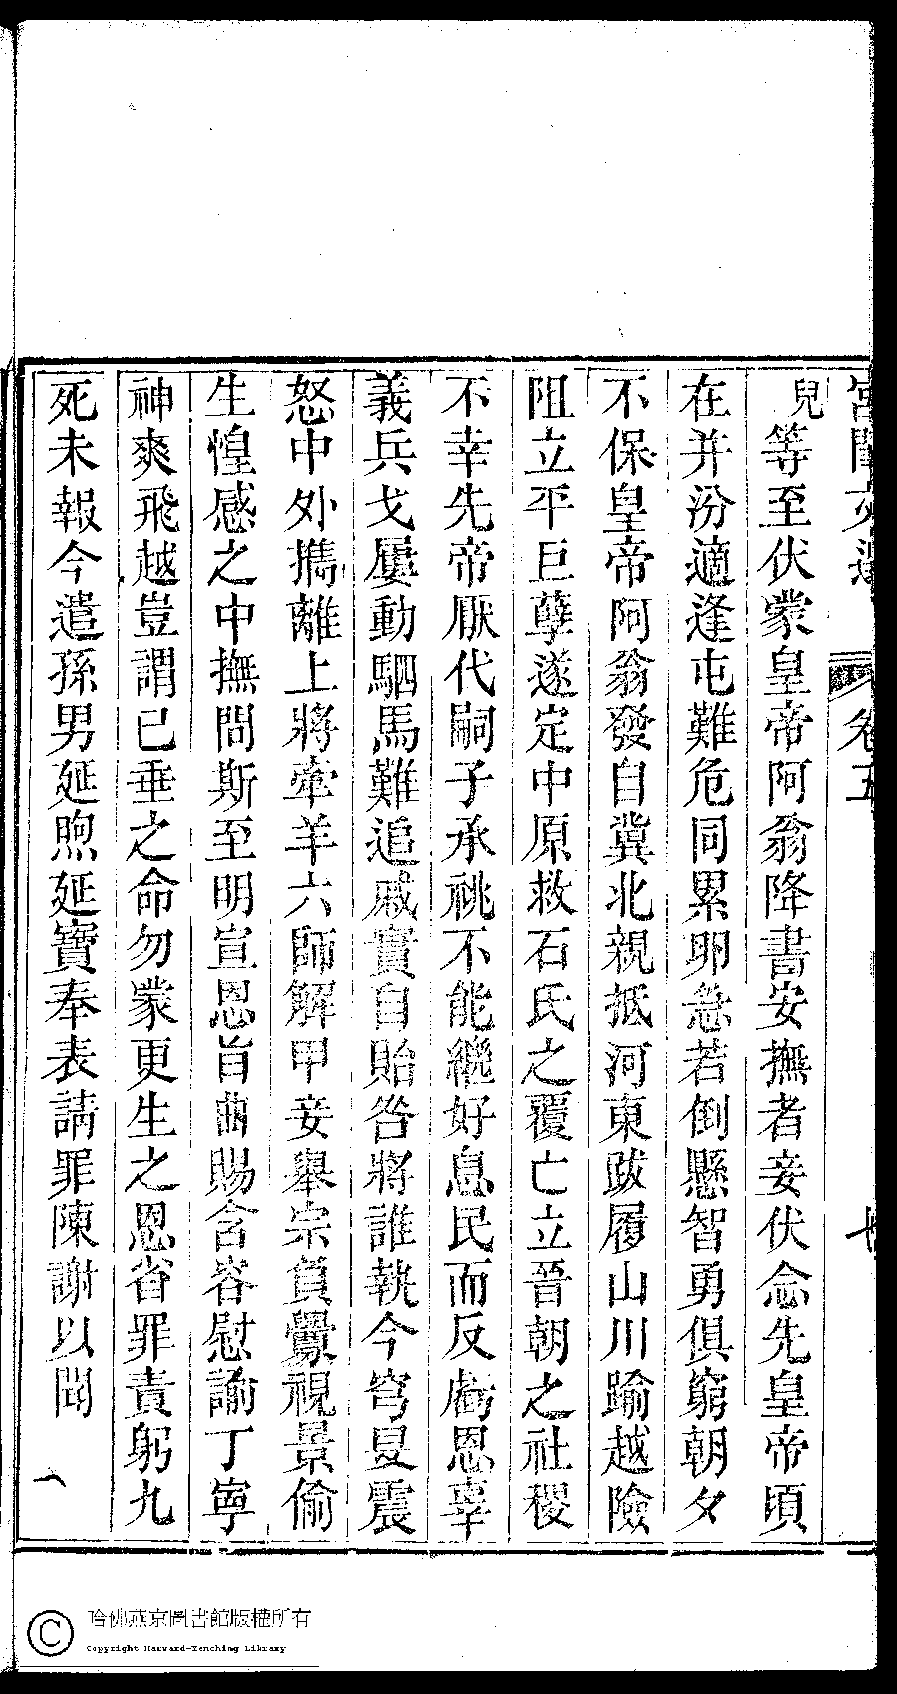 宮閨文選 卷五 七
兒等至伏蒙皇帝阿翁降書安撫者妾伏念先皇帝頃
在并汾適逢屯難危同累卵急若倒懸智勇俱窮朝夕
不保皇帝阿翁發自冀北親抵河東跋履山川踰越險
阻立平巨孽遂定中原救石氏之覆亡立晉朝之社稷
不幸先帝厭代嗣子承祧不能繼好息民而反虧恩辜
義兵戈屢動駟馬難追戚實自貽咎將誰執今穹旻震
怒中外攜離上將牽羊六師解甲妾舉宗負釁視景偷
生惶惑之中撫問斯至明宣恩旨曲賜含容慰諭丁寧
神爽飛越豈謂已垂之命勿蒙更生之恩省罪責躬九
死未報今遣孫男延煦延寶奉表請罪陳謝以聞
哈佛燕京圖書館版權所有
Copyright Harvard-Yenching Library